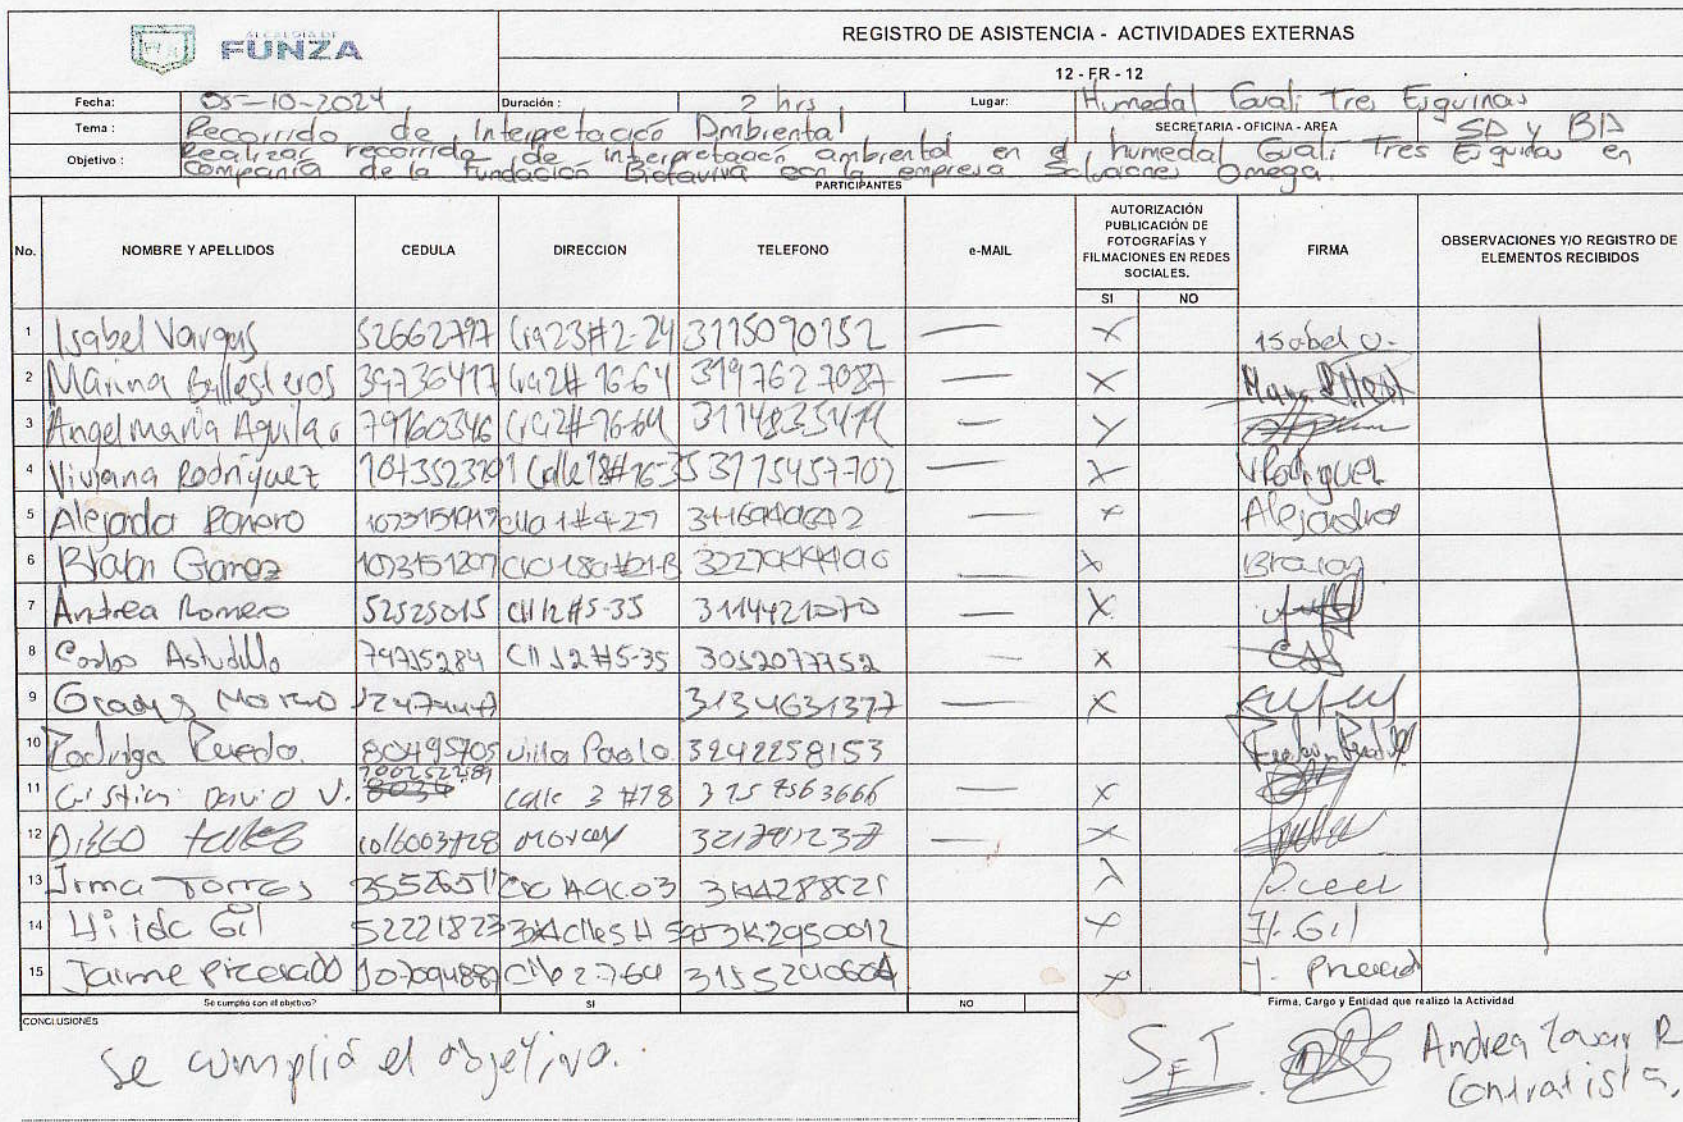 ALCALDIA DE
FUNZA
REGISTRO DE ASISTENCIA - ACTIVIDADES EXTERNAS
12 - FR - 12
Fecha: 05-10-2024 Duración : 2 hrs Lugar: Humedal Guali Tres Esquinas
Tema : Recorrido de Interpetació Ambiental SECRETARIA - OFICINA - AREA SD y BA
Objetivo : Realizar recorrido de interpretación ambiental en el humedal Guali Tres Esquinas en
Compañia de la Fundación Biotaviva con la empresa Soluciones Omega.
PARTICIPANTES
No. NOMBRE Y APELLIDOS CEDULA DIRECCION TELEFONO e-MAIL AUTORIZACIÓN PUBLICACIÓN DE FOTOGRAFÍAS Y FILMACIONES EN REDES SOCIALES. FIRMA OBSERVACIONES Y/O REGISTRO DE ELEMENTOS RECIBIDOS
SI NO
1 Isabel Vargas 52662797 Cra23#2-24 3115090152 — X Isabel V.
2 Marina Ballesteros 39736417 Cra2#16-64 3197627087 — X
3 Angel maria Aguilar 79160346 Cra2#16-64 3114835414 — X
4 Viviana Rodriguez 1073523201 Calle18#16-35 3115457702 — X VRodriguez
5 Alejadra 3116949642 — X Alejandra
6 1073151207 — X Braian
7 Andrea Romero 52525015 Cll12#5-35 3114421070 — X
8 Carlos Astudillo 79715284 Cll 12#5-35 3052077752 — X
9 Gladys Moreno 3134631377 — X
10 Rodrigo 80495705 villa Paola 3242258153
11 Cristian David V. 1002522189 calle 3 #18 3157563666 — X
12 DIEGO 1016003728 3217812237 — X
13 Irma Torres X
14 Hilda Gil 52221823 X H. Gil
15 Jaime 3155240604 X J.
Se cumplio con el objetivo? SI NO Firma, Cargo y Entidad que realizó la Actividad
CONCLUSIONES
Se cumplió el objetivo.
Andrea Tovar R
Contratista.